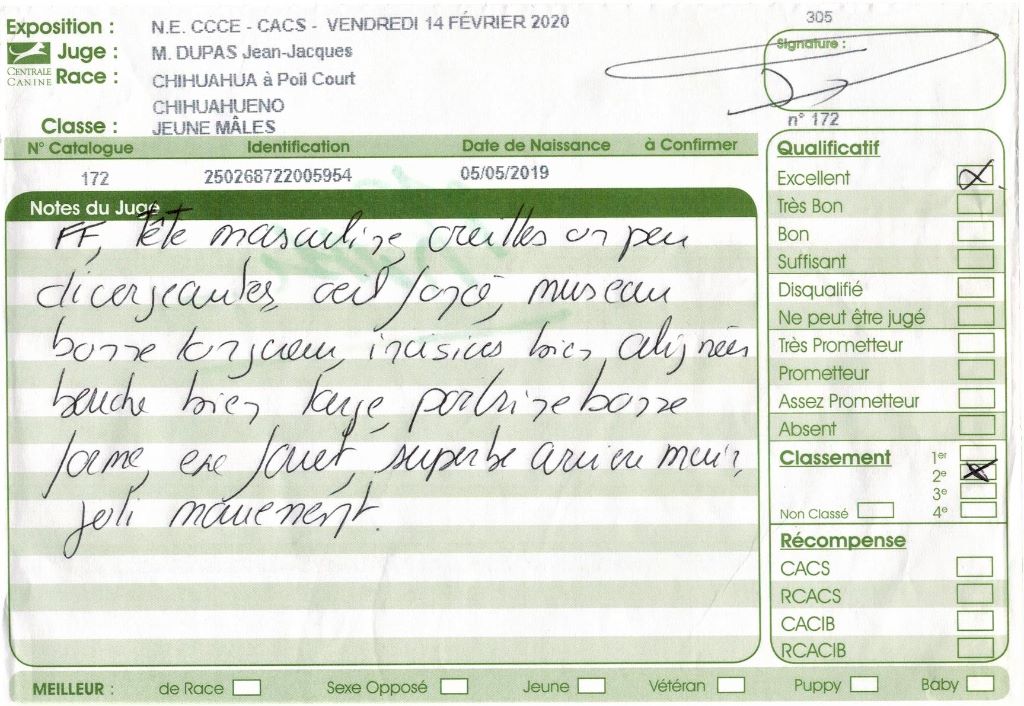 305
Exposition : N.E. CCCE - CACS - VENDREDI 14 FÉVRIER 2020
Juge : M. DUPAS Jean-Jacques
CENTRALE CANINE
Race : CHIHUAHUA à Poil Court
CHIHUAHUENO
Classe : JEUNE MÂLES
Signature :
n° 172
N° Catalogue Identification Date de Naissance à Confirmer
172 250268722005954 05/05/2019
Notes du Juge
FF, Tête masculine oreilles un peu
divergeantes, œil foncé, museau
bonne longueur, incisives bien alignées
bouche bien large, poitrine bonne
forme, fouet, superbe arrière main,
joli mouvement.
Qualificatif
Excellent
Très Bon
Bon
Suffisant
Disqualifié
Ne peut être jugé
Très Prometteur
Prometteur
Assez Prometteur
Absent
Classement 1er
2e
3e
Non Classé 4e
Récompense
CACS
RCACS
CACIB
RCACIB
MEILLEUR : de Race Sexe Opposé Jeune Vétéran Puppy Baby